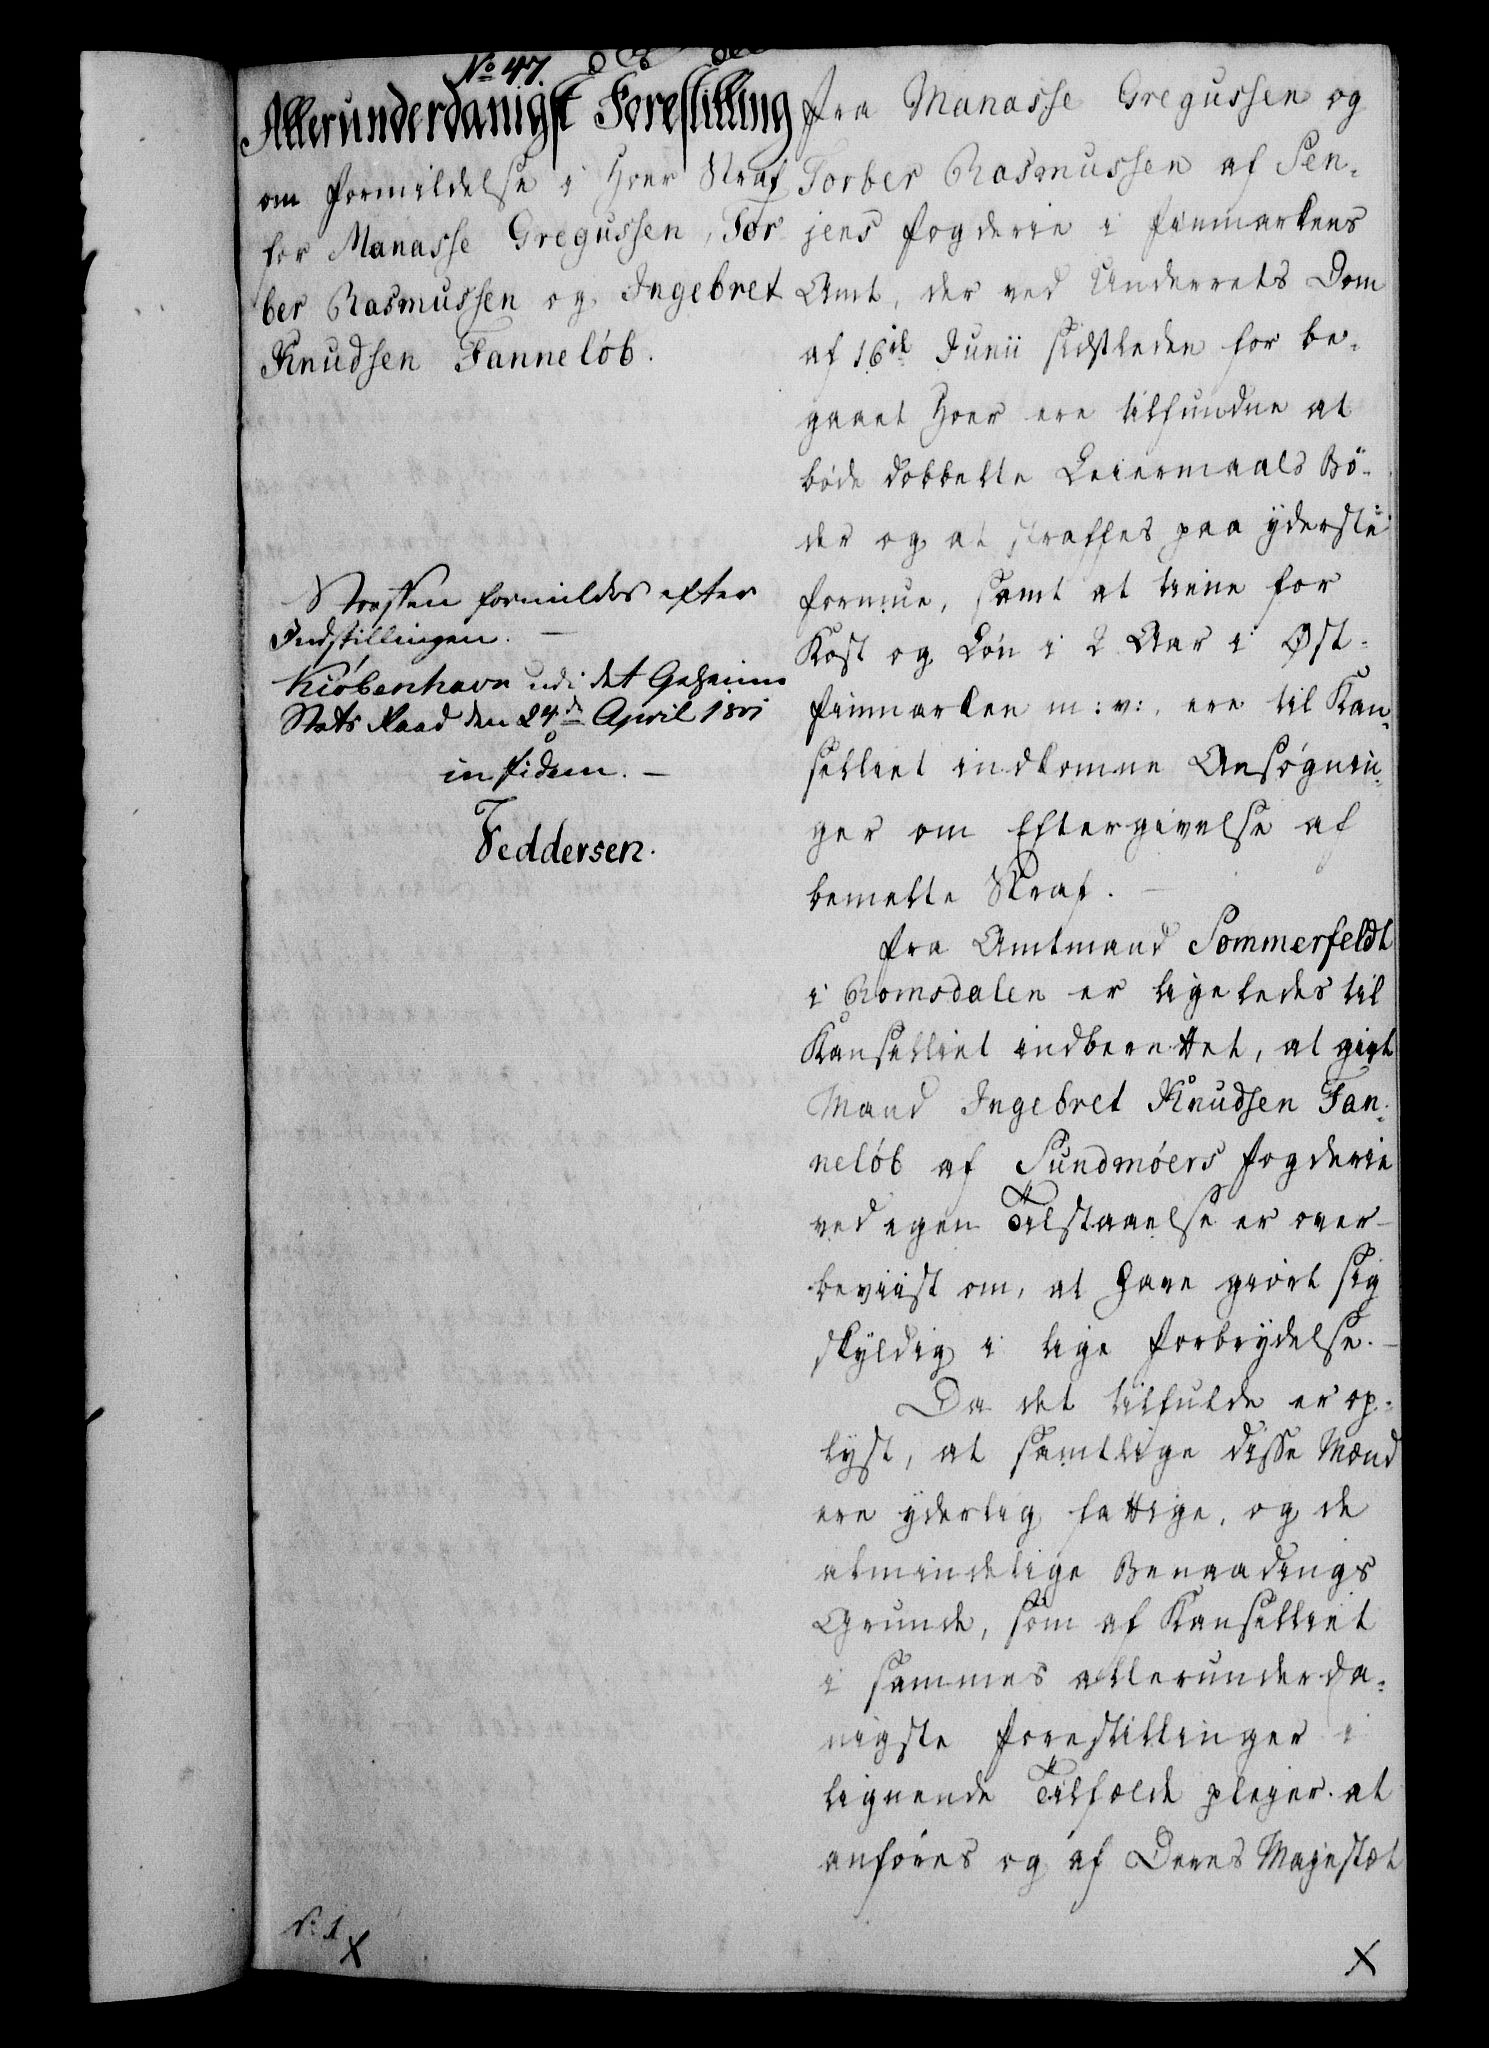 No 47.
Allerunderdanigst Forestilling
om Formildelse i Hoer Straf
for Manasse Gregussen, Tor
ber Rasmussen og Ingebret
Knudsen Fanneløb.
Straffen formildes efter
Indstillingen. —
Kiöbenhavn udi det Geheime
Stats Raad den 24de April 1801
in fidem. —
Feddersen.
Fra Manasse Gregussen og
Torber Rasmussen af Sen-
jens Fogderie i Finmarkens
Amt, der ved Underrets Dom
af 16de Junii sidstleden for be-
gaaet Hoer ere tilfundne at
bøde dobbelte Leiermaals Bö-
der og at straffes paa yderste
Formue, samt at tiene for
Kost og Løn i 2 Aar i Øst-
finmarken m: v:, ere til Kan-
celliet indkomne Ansøgnin-
ger om Eftergivelse af
bemelte Straf. —
Fra Amtmand Sommerfeldt
i Romsdalen er ligeledes til
Kancelliet indberettet, at gift
Mand Ingebret Knudsen Fan-
neløb af Sundmöers Fogderie
ved egen Tilstaaelse er over-
beviist om, at have giort sig
skyldig i lige Forbrydelse. —
Da det tilfulde er op-
lyst, at samtlige disse Mænd
ere yderlig fattige, og de
almindelige Benaadings
Grunde, som af Kancelliet
i sammes allerunderda-
nigste Forestillinger i
lignende Tilfælde plejer at
anføres og af Deres Majestæt